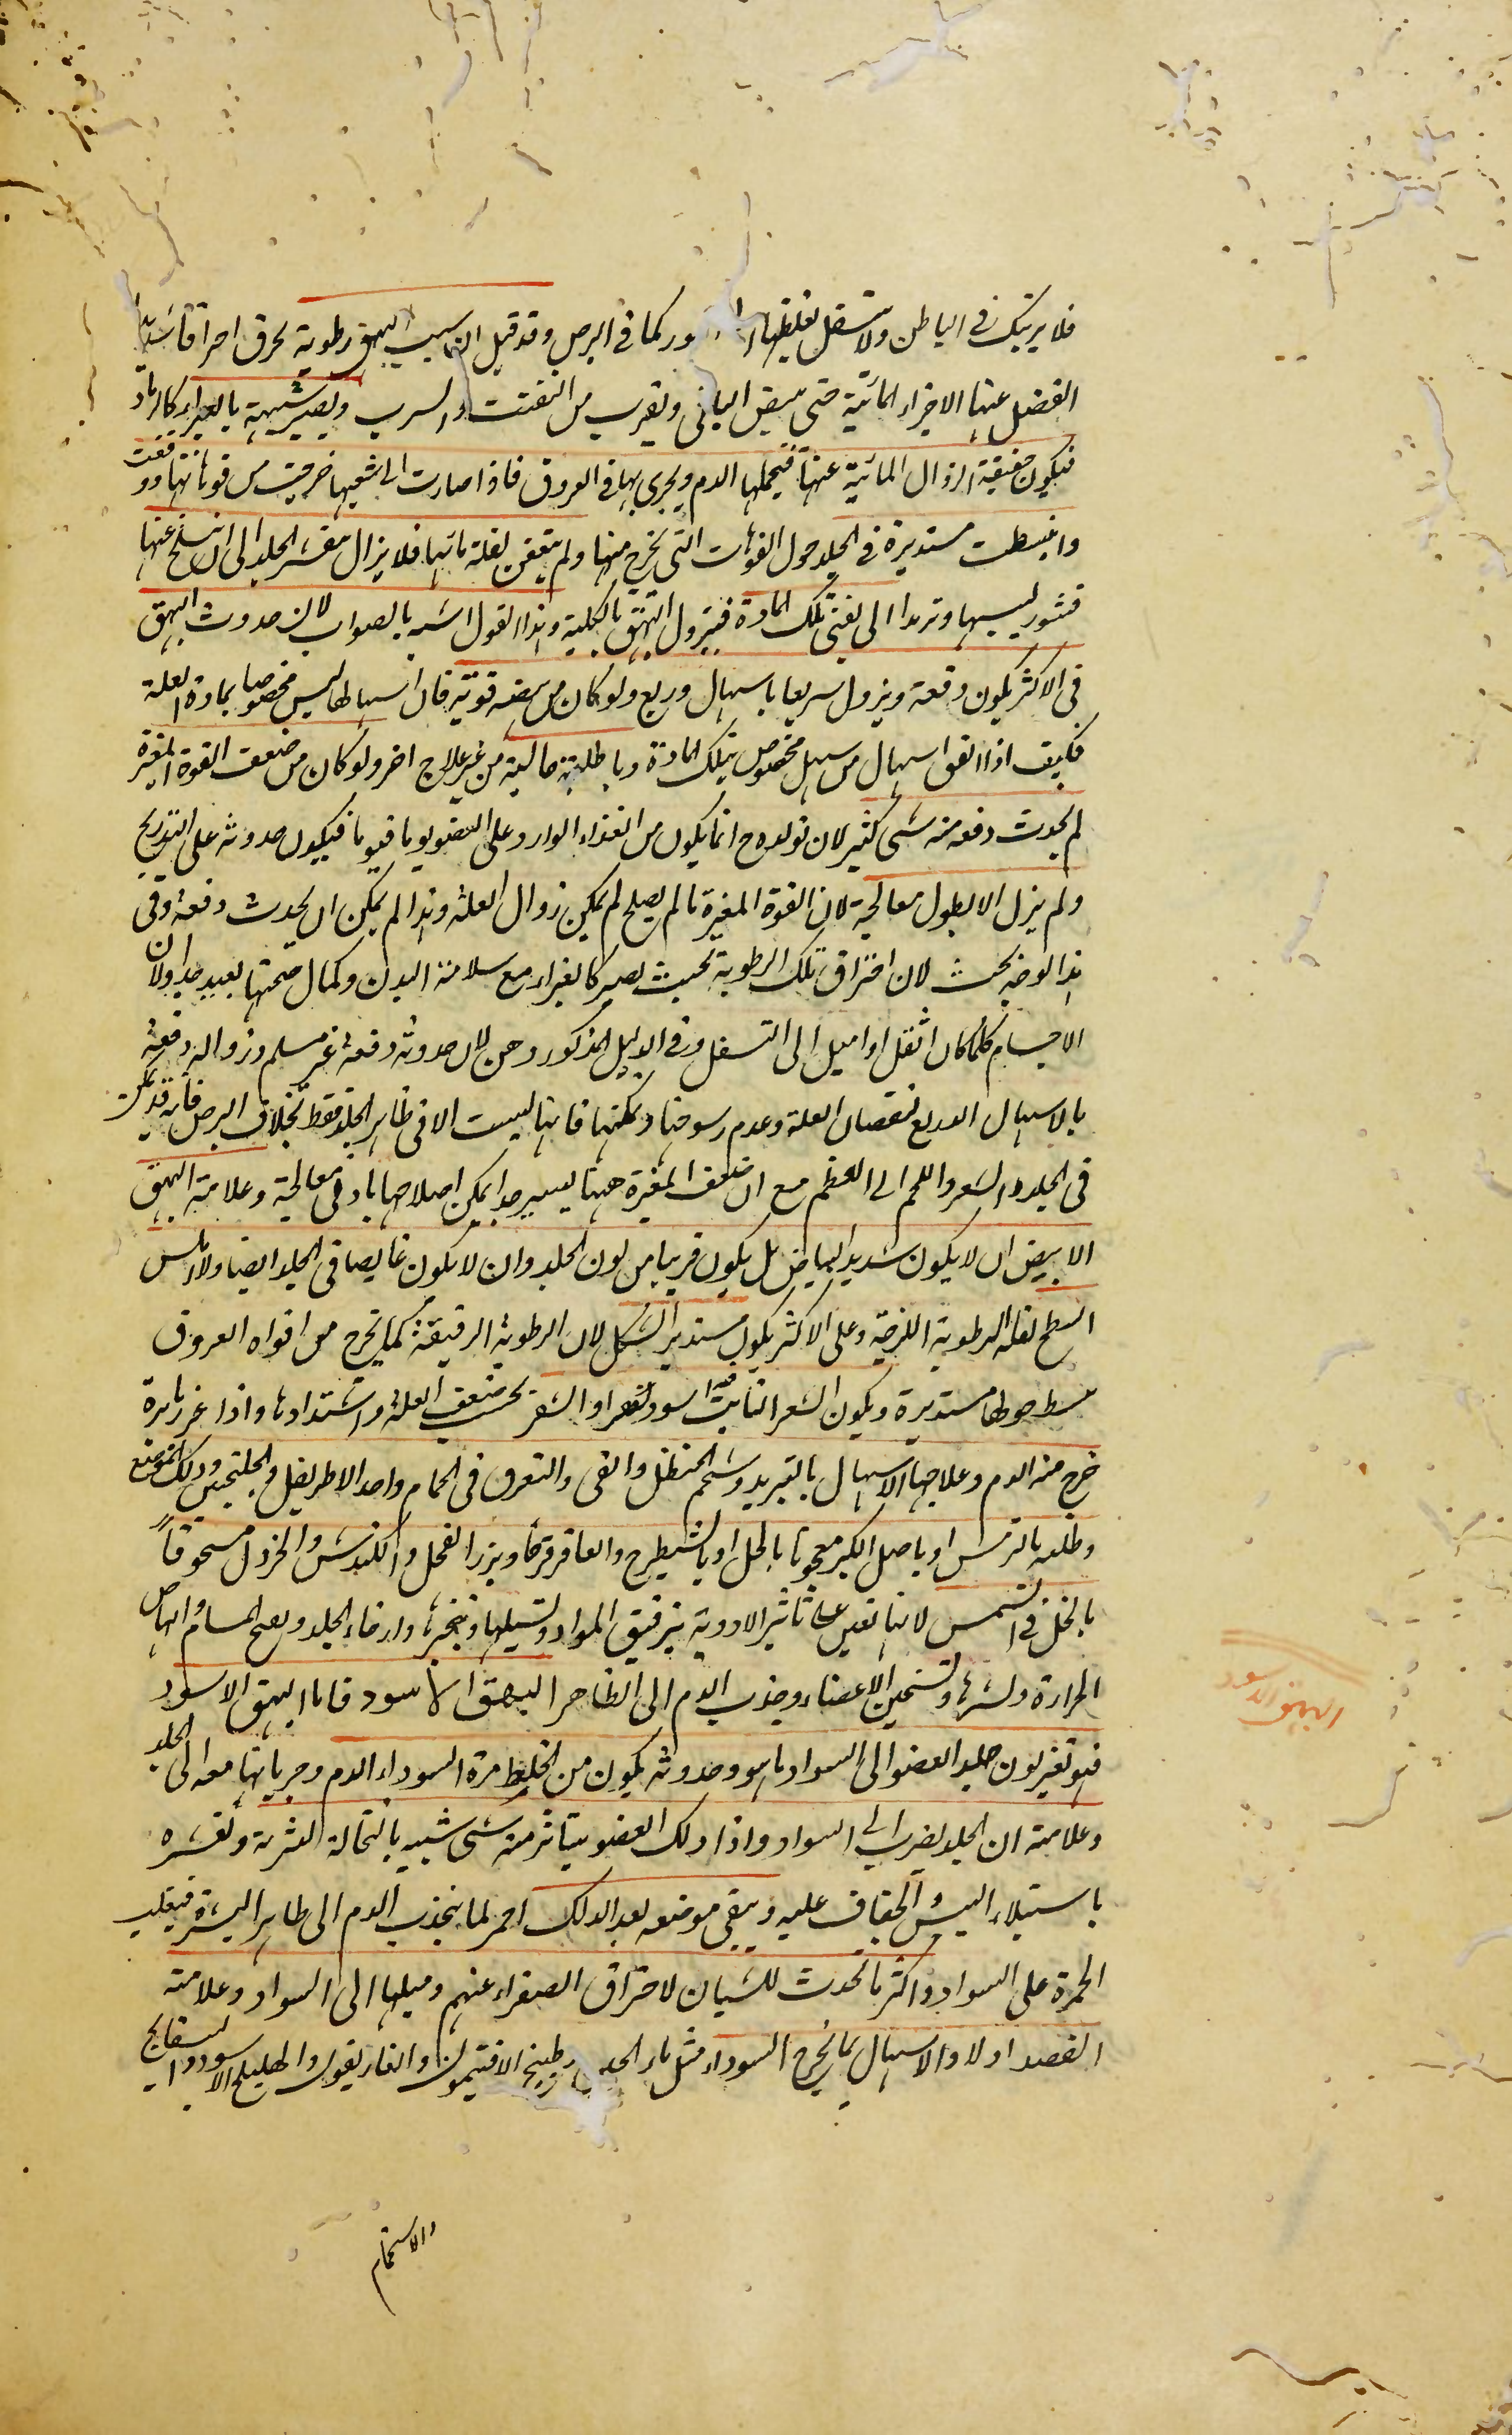 فلا يرتبك فى الباطن ولا تستقل لغلظها الى الغور كما فى البرص وقد قيل ان سبب البهق رطوبة تحرق احراقا شديدا
انفصل عنها الاجزاء المائية حتى يبقى الباقى ويقرب من التفتت والترب ويصير شبيهة بالغبار كالرماد
فيكون خفيفة لزوال المائية عنها فيحملها الدم ويجرى بها فى العروق فاذا صارت الى شعبها خرجت من فوهاتها ووقفت
وانبسطت مستديرة فى الجلد حول الفوهات التى يخرج منها ولم يتعفن لقلة مائيتها فلا يزال يتقشر الجلد الى ان ينسلخ عنها
قشور ليبسها وترمدا الى تفنى تلك المادة فيزول البهق بالكلية وهذا القول اشبه بالصواب لان حدوث البهق
فى الاكثر يكون دفعة ويزول سريعا باسهال وربع ولو كان من بعضه قوية فان اسهالها ليس مخصوصا بمادة العلة
فكيف اذا اتفق اسهال من مسهل مخصوص بتلك المادة وباطلية جالية من غير علاج اخر ولو كان من ضعف القوة المغيرة
لم يحدث دفعه منه شى كثير لان تولده ح انما يكون من الغذاء الوارد على العضو يوما فيوما فيكون حدوثه على التدريج
ولم يزل الا بطول معالجة لان القوة المغيرة ما لم يصلح لم يمكن زوال العلة وهذا لم يمكن ان يحدث دفعة وفى
هذا الوجه بحث لان احتراق تلك الرطوبة بحيث يصير كالغبار مع سلامة البدن وكمال صحتها بعيد جدا ولان
الاجسام كلما كان اثقل او اميل الى التسفل وفى الدليل المذكور وهن لان حدوثه دفعة غير مسلم وزواله دفعة
بالاسهال الذريع لنقصان العلة وعدم رسوخها وتمكنها فانها ليست الا فى ظاهر الجلد فقط بخلاف البرص فانه قد تمكن
فى الجلد والشعر واللحم الى العظم مع ان ضعف المغيرة ههنا يسير جدا يمكن اصلاحها بادنى معالجة وعلامة البهق
الابيض ان لا يكون شديد البياض بل يكون قريبا من لون الجلد وان لا يكون غايصا فى الجلد ايضا ولا املس
السطح لقلة الرطوبة اللزجة وعلى الاكثر يكون مستدير الشكل لان الرطوبة الرقيقة كما يخرج من افواه العروق
ينبسط حولها مستديرة ويكون الشعر النابت فيه اسود او اشقر بحسب ضعف العلة واشتدادها واذا غرز بابرة
خرج منه الدم وعلاجها الاسهال بالتربد وشحم الحنظل والقى والتعرق فى الحمام واخذ الاطريفل والجلنجبين ودلك الموضع
وطلعه بالترمس او باصل الكبر معجونا بالخل او بالشيطرج والعاقرقرحا وبزر الفجل والكندش والخردل مسحوقاً
بالخل فى الشمس لانها تعين على تاثير الادوية بترقيق المواد وتسييلها وتبخيرها وارخاء الجلد وفتح المسام وايصال
الحرارة ونشرها وتسخين الاعضاء وجذب الدم الى الظاهر البهق الاسود فاما البهق الاسود
فهو تغير لون جلد العضو الى السواد ما هو وحدوثه يكون من اختلاط مرة السوداء الدم وجريانها معه الى الجلد
وعلامة ان الجلد يضرب الى السواد واذا دلك العضو يتناثر منه شى شبيه بالنخالة لقشريته وتقشره
باستيلاء اليبس والجفاف عليه ويبقى موضعه بعد الدلك احمر لما ينجذب الدم الى ظاهر البشرة فيغلب
الحمرة على السواد واكثر ما تحدث للشبان لاحتراق الصفراء عنهم وميلها الى السواد وعلامته
الفصد اولا والاسهال بما يخرج السوداء مثل ماء الجبن وطبيخ الافتيمون والغاريقون والهليلج الاسود والبسفايج
البهق الاسود
والاستحمام